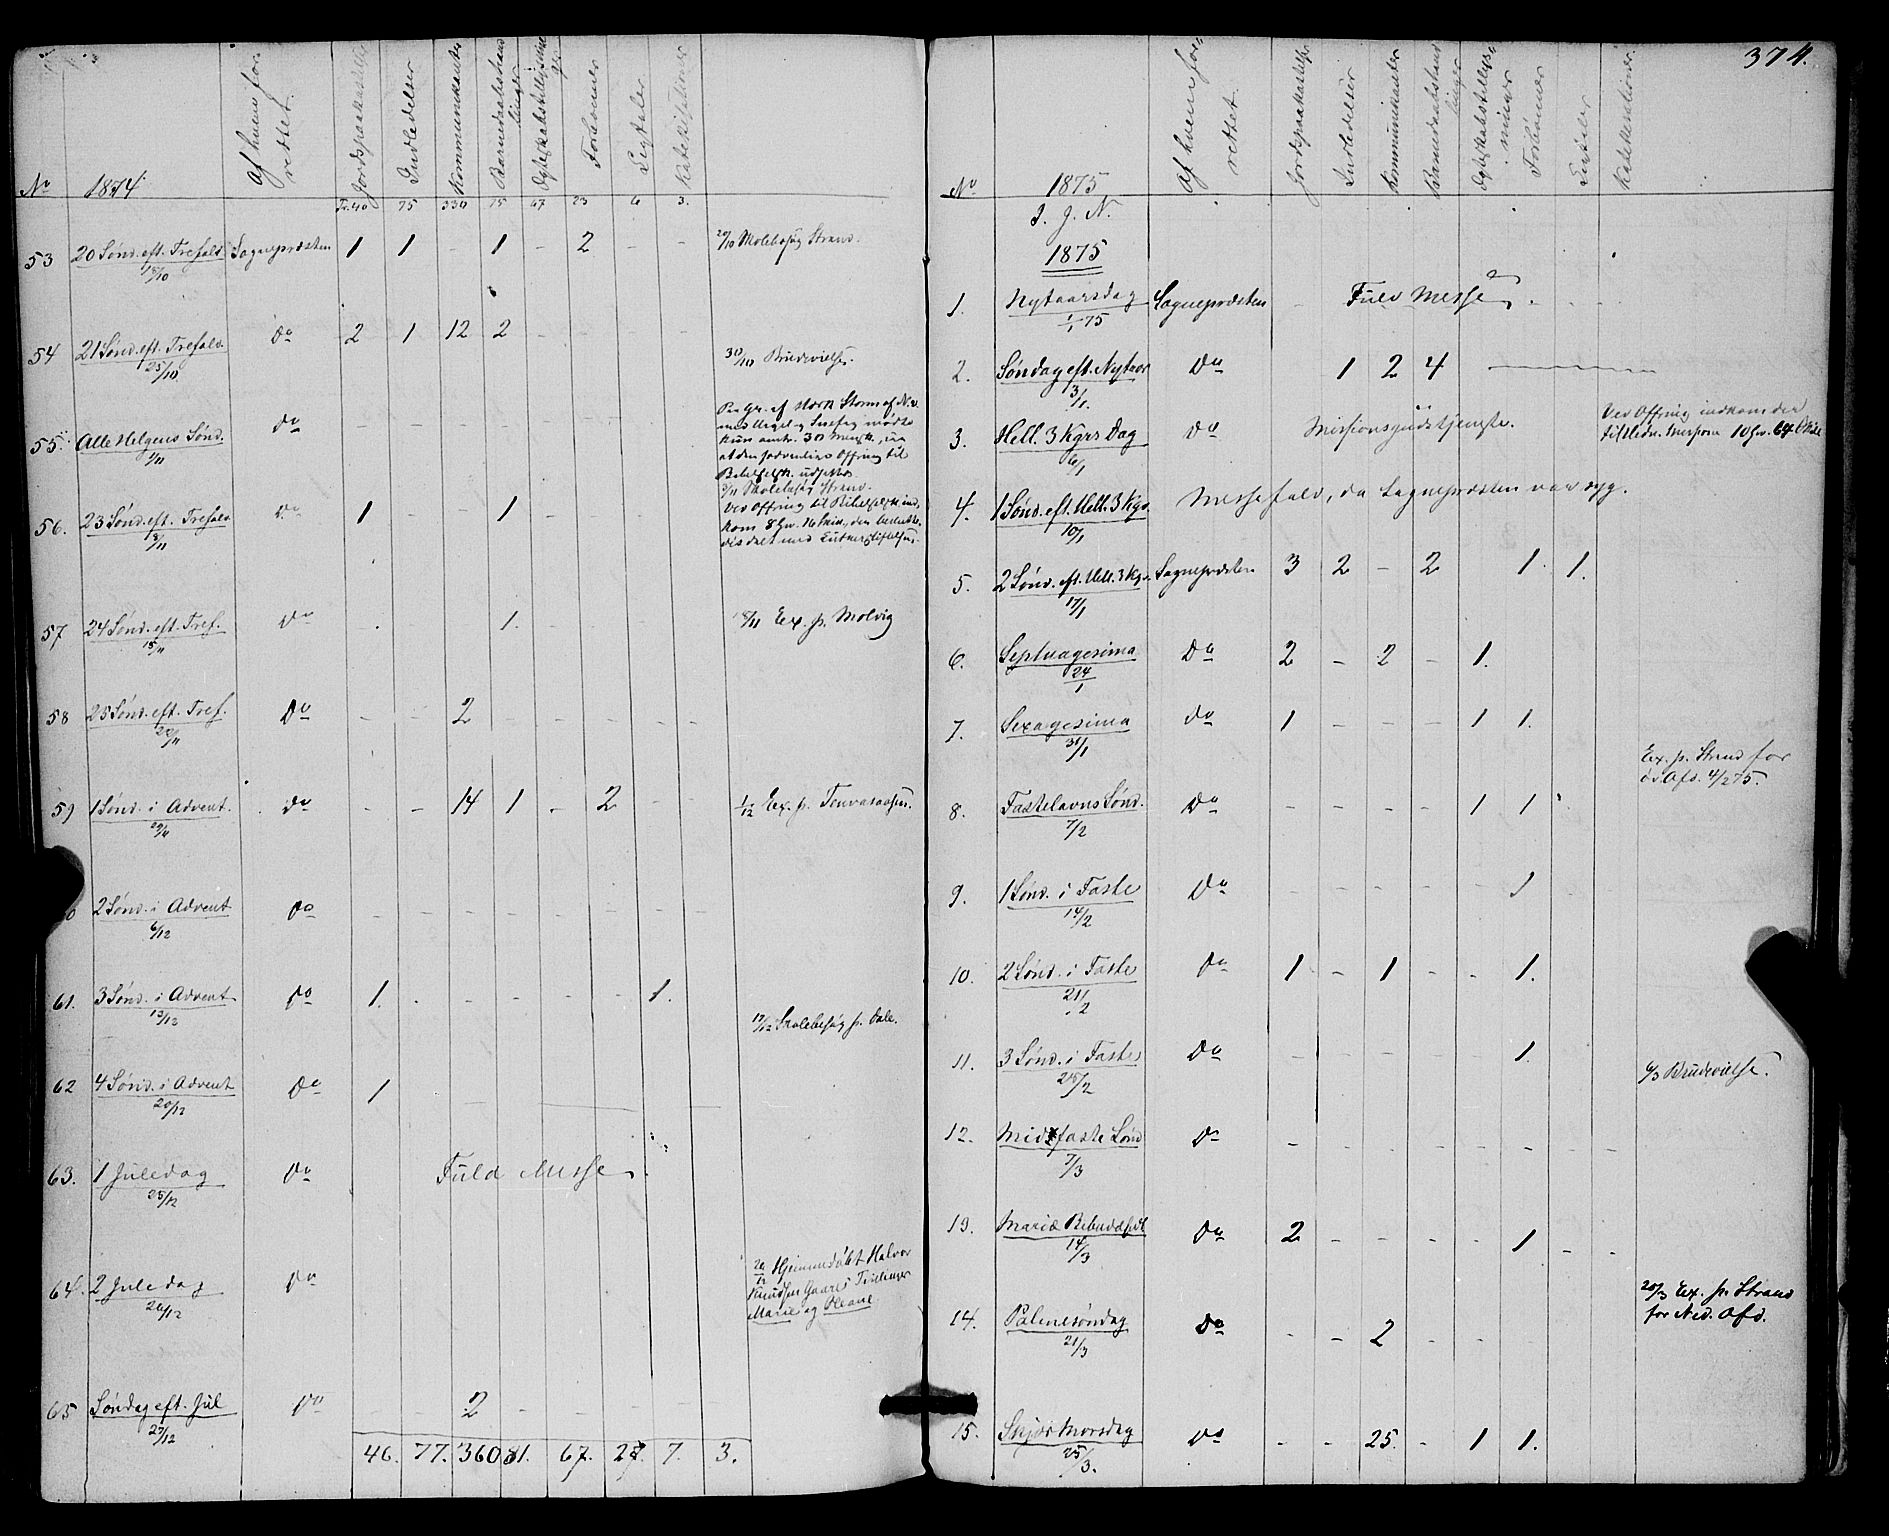 Nº 1874.
Af hvem forrettet.
Jordspaakastelser
Indledelser
Kommunikanter
Forlovner
Tr. 40 75 330 75 67 23 6 3.
53 20 Sønd. eft. Trefald. Sognepræsten 1 1 - 1 - 2 - - 20/10 Skolebesøg Strand.
18/10
54 21 Sønd. eft. Trefald. Dº 2 1 12 2 - - - -
25/10
30/10 Brudevielse.
55. Alle Helgens Sønd. Dº - - - - - - - -
1/11
Paa Gr. af stærk Storm af N.V.
med Regn og Snefog mødte
kun omtr. 30 Mensk.
at den sædvanlige Offring til
Bibelselsk. udsattes
3/11 Skolebesøg Strand.
56. 23 Sønd. eft. Trefald. Dº 1 - - 1 - - -
8/11
Ved Offring til Bibelselsk. ind-
kom
57 24 Sønd. eft. Tref. Dº 1. - - 18/11 Ex. p. Molvig
15/11
58 25 Sønd. eft. Tref. Dº - - 2 - - - - -
22/11
59 1 Sønd. i Advent. Dº - - 14 1 - 2 - - 1/12 Ex. p.
29/11
2 Sønd. i Advent Dº - - - - - - - -
6/12
61. 3 Sønd. i Advent Dº 1. - - - - - 1.
13/12
17/12 Skolebesøg p. Dale.
62 4 Sønd. i Advent Dº 1
20/12
63. 1 Juledag Dº Fuld Messe
25/12
64. 2 Juledag Dº
26/12
26/12 Hjemmedøbt Halvor
Knudsen Gaars Tvillinger
Marie og
65 Søndag eft. Jul Dº - - 2 - - - -
27/12
46. 77. 360 81. 67. 27. 7. 3.
374.
Nº 1875
Af hvem forrettet.
Jordspaakastelser
Indledelser
Kommunikanter
Forlovner
I. J. N.
1875
1. Nytaarsdag Sognepræsten - Fuld Messe
1/1 75
2. Søndag eft. Nytaar Dº 1 2 4
3/1.
3. Hell. 3 Kgrs Dag Dº Missionsgudstjeneste.
6/1
Ved Offring indkom der
4. 1 Sønd. eft. Hell. 3 Kgr. Messefald, da Sognepræsten var syg.
10/1
5. 2 Sønd. eft. Hell. 3 Kgr. Sognepræsten 3 2 - 2 1. 1.
17/1
6. Septuagesima Dº 2 - 2 - 1.
24/1
7. Sexagesima Dº 1 - - - 1 1.
31/1
Ex. p. Strand for
øv. Afd. 4/2 75.
8. Fastelavns Sønd. Dº - - - - 1 1
7/2
9. 1 Sønd. i Faste Dº - - - - - 1 -
14/2
10. 2 Sønd. i Faste Dº 1 - 1 - - 1.
21/2
11. 3 Sønd. i Faste Dº - - - - - 1.
28/2
6/3 Brudevielse.
12. Midfaste Sønd Dº - - - - - - - -
7/3
13. Mariæ Bebudelse Dº 2 - - - - 1 - -
14/3
20/3 Ex. p. Strand
for Ned. Afd.
14. Palmesøndag Dº - - 2 - - -
21/3
15. Skjærthorsdag Dº - - 25. - 1 1.
25/3.